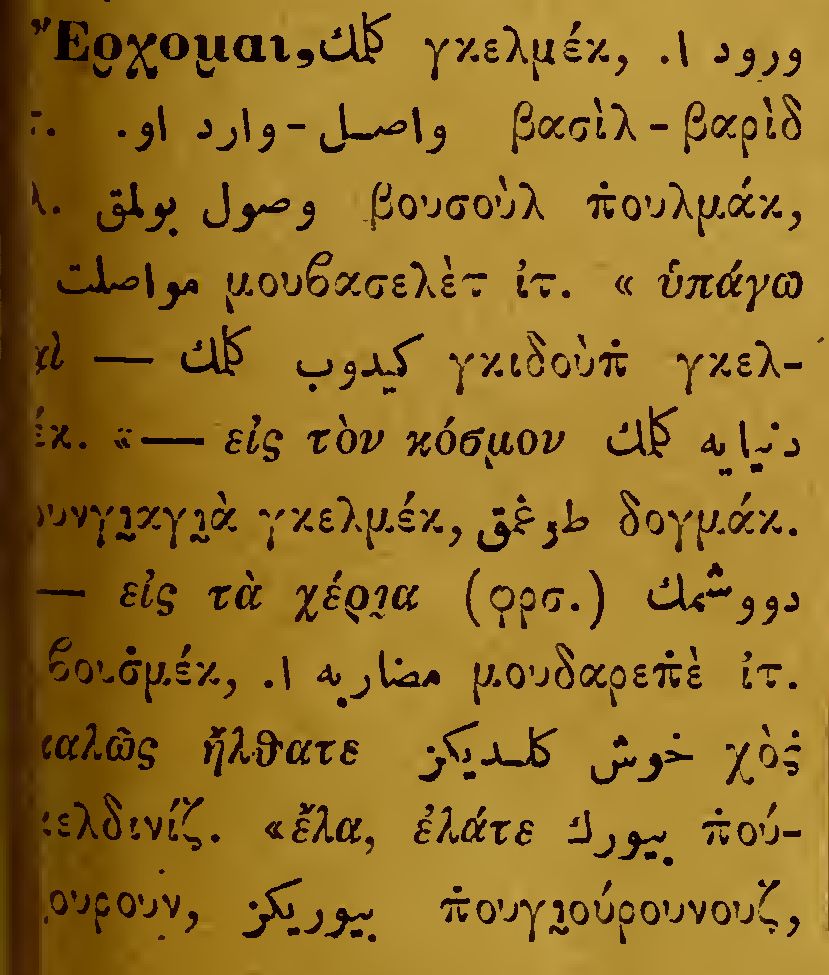 Ἔρχομαι, كلمك γκελμέκ, ورود ا.
واصل-وارد او. βασὶλ-βαρὶδ
وصول بولمق βουσοὺλ π̇ουλμάκ,
مواصلت μουβασελὲτ ἰτ. « ὑπάγω
— كیدوب كلمك γκιδοὺπ̇ γκελ-
έκ. «— εἰς τὸν κόσμον دنیایه كلمك
γκελμέκ, طوغمق δογμάκ.
— εἰς τὰ χέρια (φρσ.) دووشمك
βουσ̇μέκ, مضاربه ا. μουδαρεπ̇ὲ ἰτ.
καλῶς ἤλθατε خوش كلدیكز χὸσ̇
κελδινίζ. «ἔλα, ἐλάτε بیورك π̇ού-
ουρουν, بیوریكز π̇ουγιούρουνουζ,